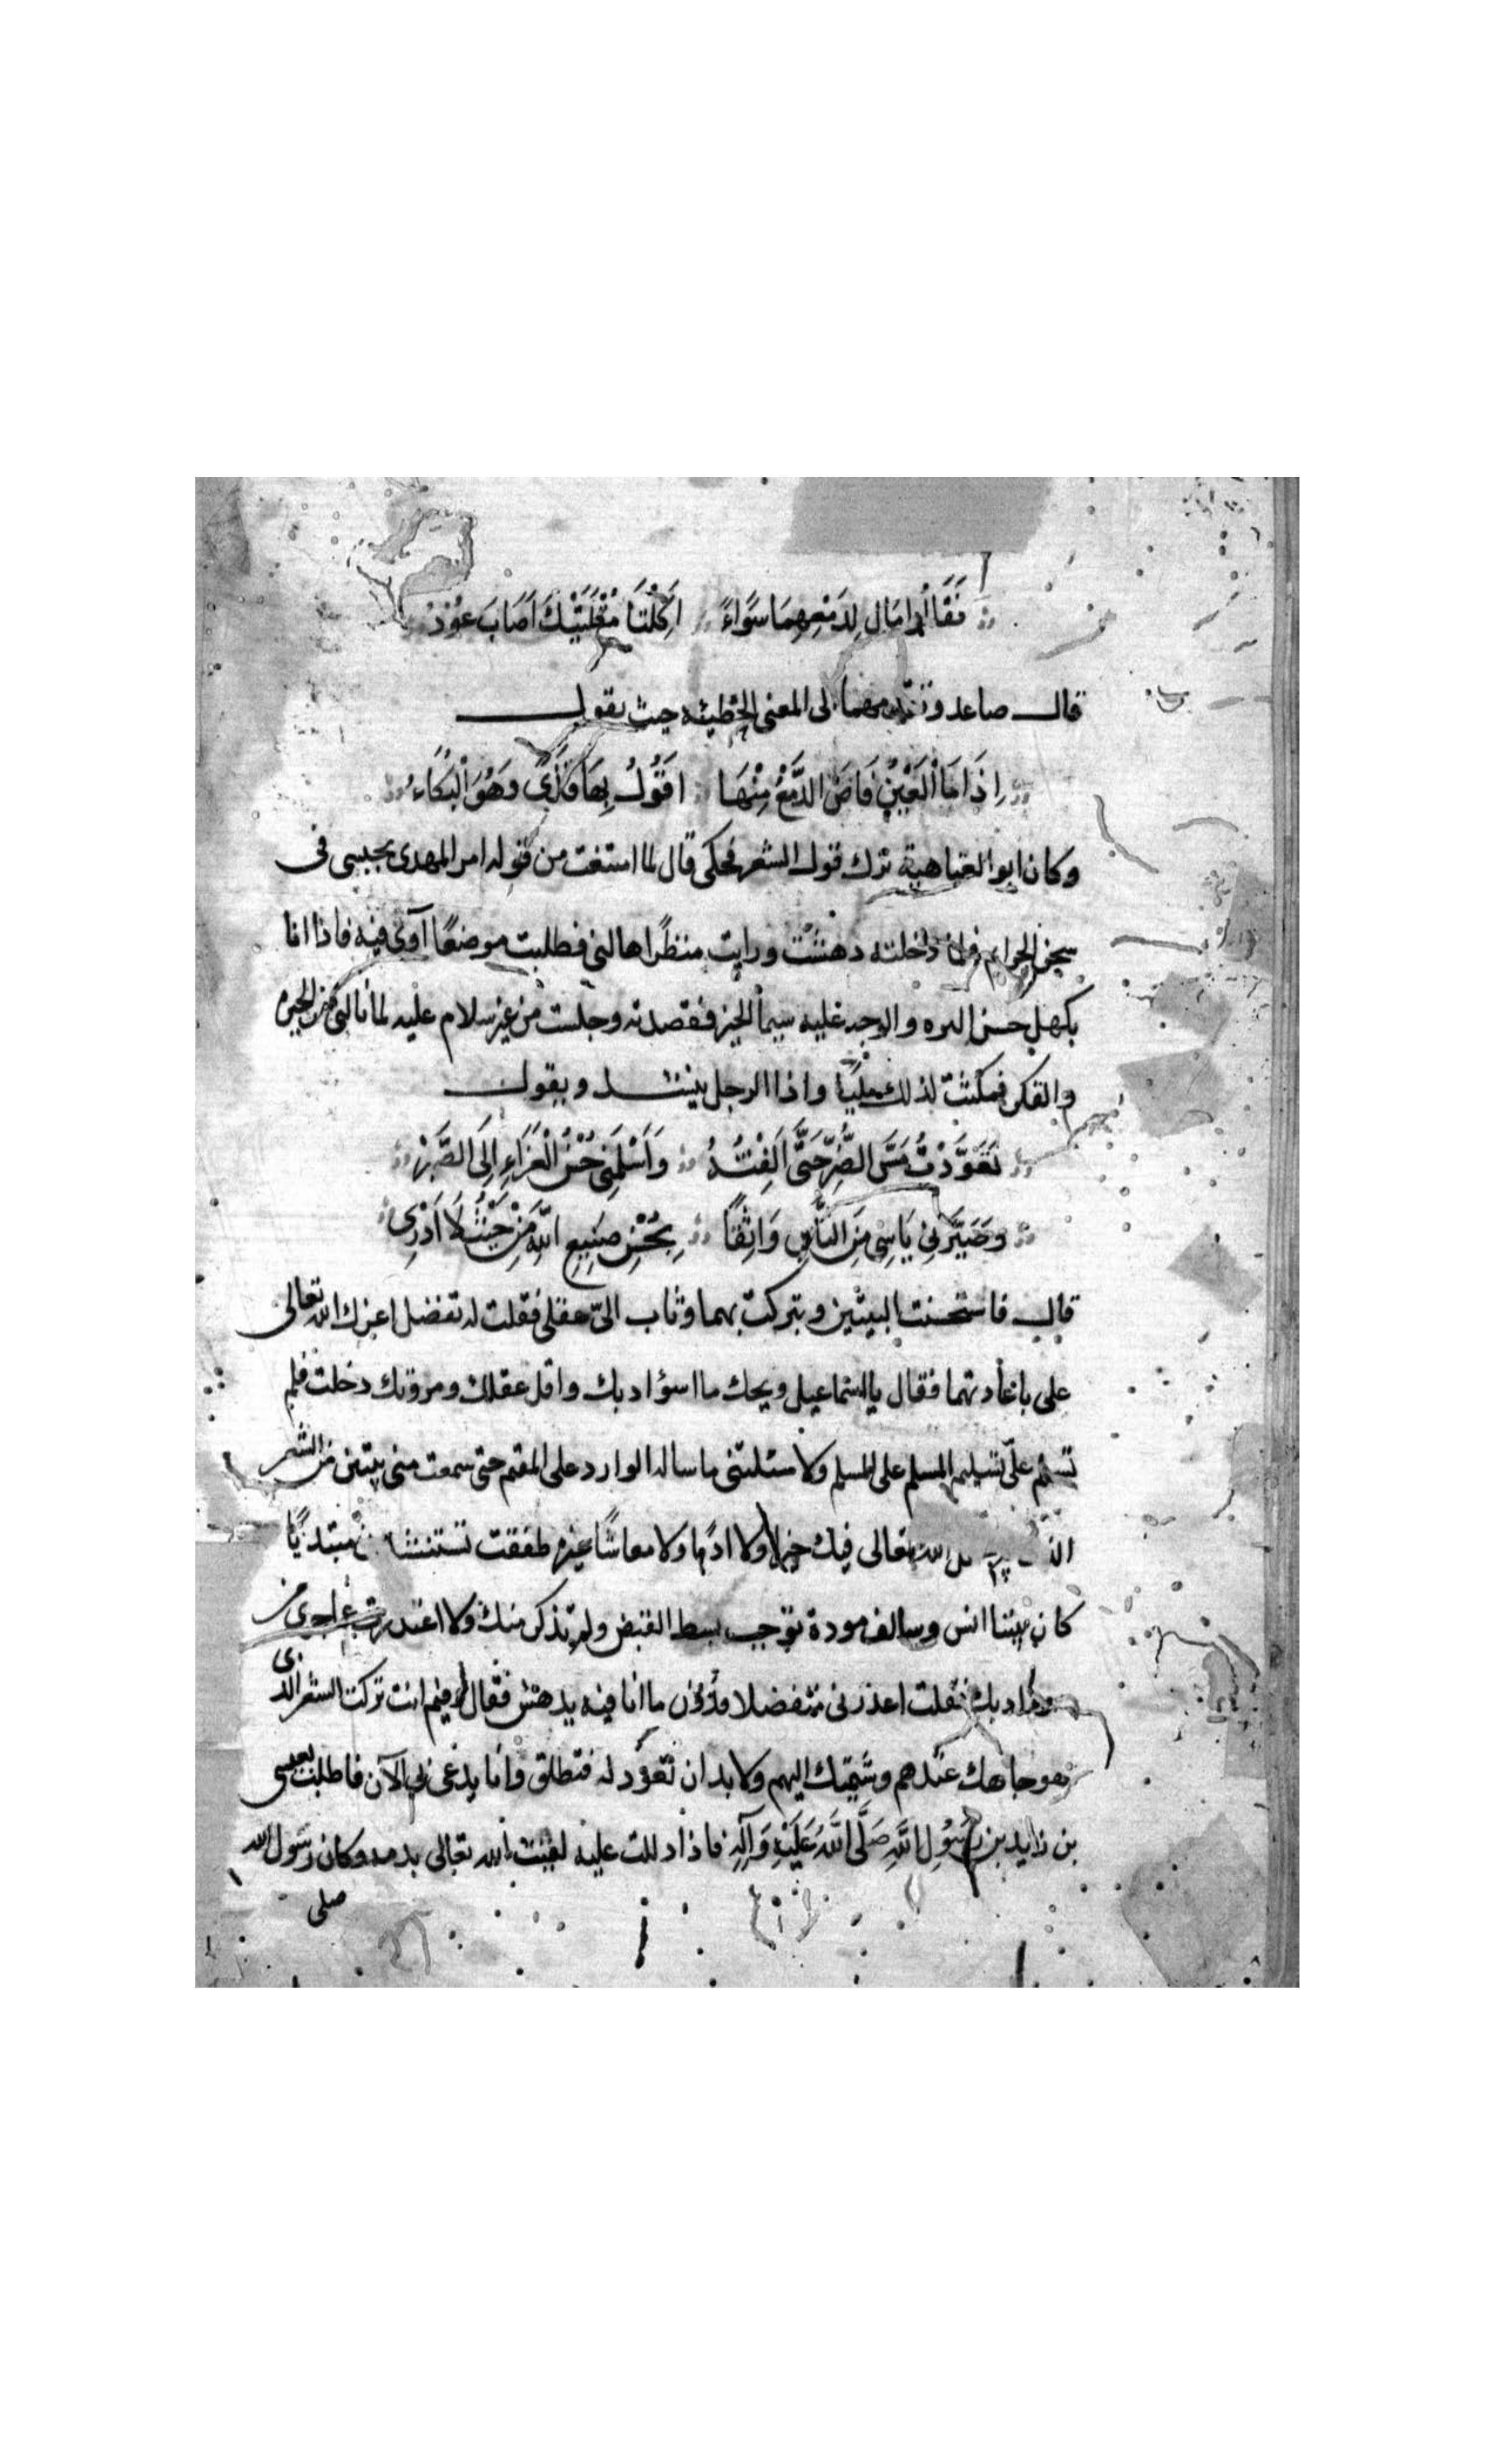 فَقَالُوا مَا لِدَمْعِهِمَا سَوَاءً اَكِلْتَا مُقْلَتَيْكَ اَصَابَ عُوْدُ
قال صاعد وتقدمهما الى المعنى الحطيئه حيث يقول
اِذَا مَا الْعَيْنُ فَاضَ الدَّمْعُ مِنْهَا اَقُوْلُ بِهَا قَذًى وَهُوَ الْبُكَاءُ
وكان ابو العتاهية ترك قول الشعر فحكى قال لما امتنعت من قوله امر المهدى بحبسى فى
سجن الجرايم فلما دخلته دهشت ورايت منظرًا هالنى فطلبت موضعًا آوى فيه فاذا انا
بكهل حسن البزه والوجه عليه سيما الخير فقصدته وجلست من غير سلام عليه لما نالنى من الحيره
والفكر فمكثت لذلك مليًا واذا الرجل ينشد ويقول
تَعَوَّدْتُ مَسَّ الضُّرِّ حَتَّى اَلِفْتُهُ وَاَسْلَمَنِى حُسْنُ الْعَزَاءِ اِلَى الصَّبْرِ
وَصَيَّرَنِى يَاْسِى مِنَ النَّاسِ وَاثِقًا بِحُسْنِ صَنِيعِ اللّٰهِ مِنْ حَيْثُ لَا اَدْرِى
قال فاستحسنت البيتين وتبركت بهما وثاب الىّ عقلى فقلت له تفضل اعزك الله تعالى
على باعادتهما فقال يا اسماعيل ويحك ما اسوٴ ادبك واقل عقلك ومروتك دخلت فلم
تسلم علىّ تسليم المسلم على المسلم ولا سئلتنى ما ساله الوارد على المقيم حتى سمعت منى بيتين من الشعر
الله تعالى فيك خيرا ولا ادبًا ولا معاشًا غيره طفقت مبتدئًا
كان بيننا انس وسالف مودة توجب بسط القبض ولم تذكر منك ولا اعتذرت من
ادبك فقلت اعذرنى متفضلا فدون ما انا فيه يدهش فقال وفيم انت تركت الشعر الذى
هو جاهك عندهم وسببك اليهم ولا بد ان تقول له فتطلق وانا يدعى بى الآن فاطلب بعيسى
بن زايد بن رَسُوْلِ اللّٰهِ صَلَّى اللّٰهُ عَلَيْهِ وَآلِهِ فاذا دللت عليه لقيت الله تعالى بدمه وكان رسول الله
صلى